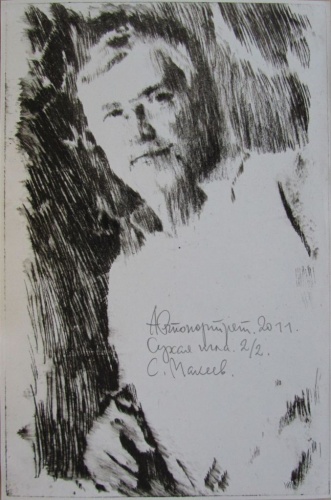 Автопортрет. 2011.
Сухая игла. 2/2.
С. Малеев.